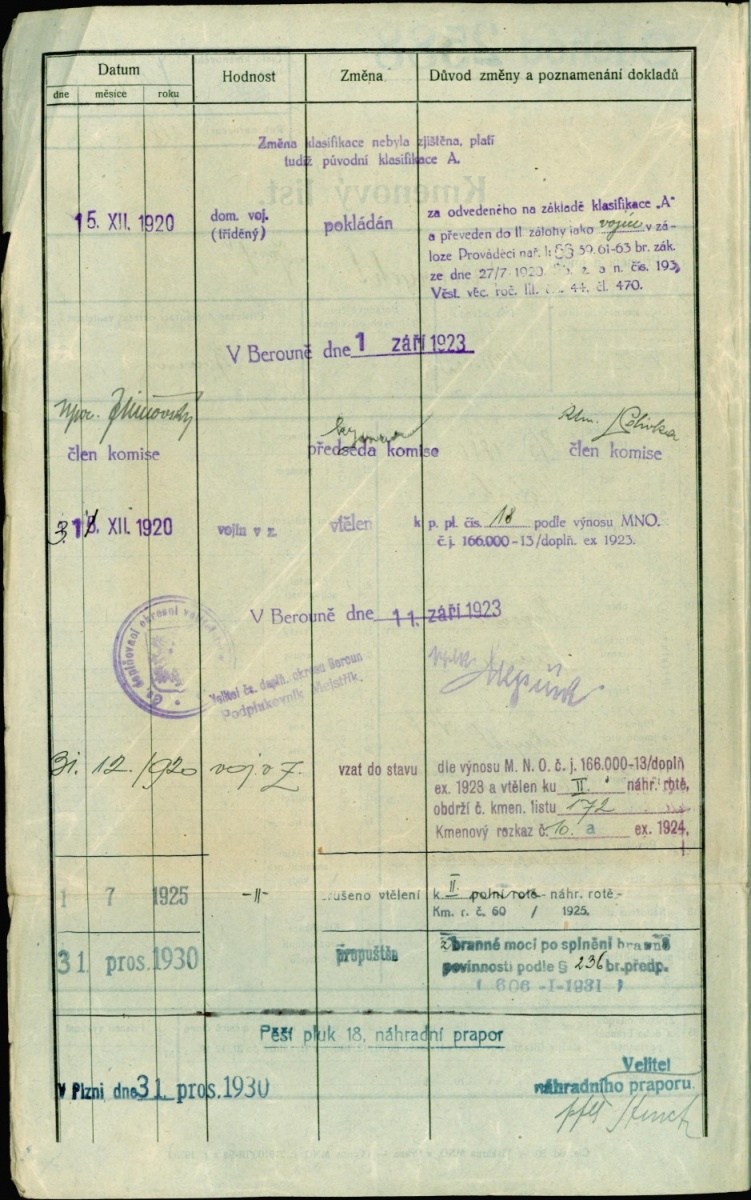 Datum
dne měsíce roku
Hodnost
Změna
Důvod změny a poznamenání dokladů
Změna klasifikace nebyla zjištěna, platí
tudíž původní klasifikace A.
15. XII. 1920
dom. voj.
(tříděný)
pokládán
za odvedeného na základě klasifikace „A"
a převeden do II. zálohy jako vojín v zá-
loze Prováděcí nař. k § 59, 61-63 br. zák.
ze dne 27/7 1920 z. a n. čís. 193,
Věst. věc. roč. III. 44, čl. 470.
V Berouně dne 1 září 1923
člen komise
předseda komise
člen komise
XII. 1920
vojín v z.
vtělen
k p. pl. čís. 18 podle výnosu MNO.
č. j. 166.000-13/doplň. ex 1923.
V Berouně dne 11. září 1923
Velitel čs. dopln. okresu Beroun
Podplukovník Mejstřík.
31. 12. 1920
voj. v z.
vzat do stavu
dle výnosu M. N. O. č. j. 166.000-13/doplň
ex. 1923 a vtělen ku II. náhr. rotě,
obdrží č. kmen. listu 172
Kmenový rozkaz č. 10. a ex. 1924,
1 7 1925
-||-
rušeno vtělení
k II. polní rotě - náhr. rotě -
Km. r. č. 60 / 1925.
31. pros. 1930
propuštěn
z branné moci po splnění branné
povinnosti podle § 236 br. předp.
( 606 -I-1931 )
Pěší pluk 18, náhradní prapor
V Plzni dne 31. pros. 1930
Velitel
náhradního praporu.